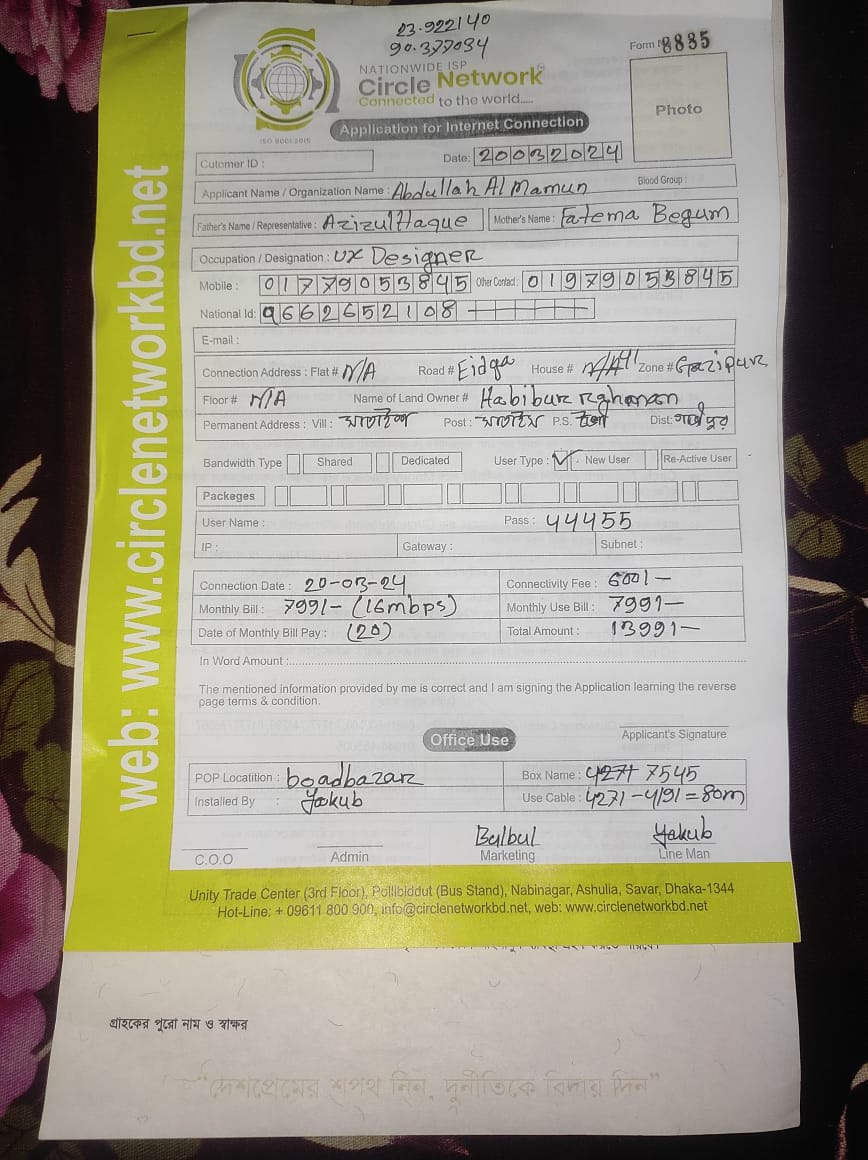 23.922140
90.377034
Form № 8835
NATIONWIDE ISP
Circle Network
Connected to the world.....
ISO 9001:2015
Application for Internet Connection
Photo
Cutomer ID :
Date: 20032024
Applicant Name / Organization Name : Abdullah Al Mamun Blood Group :
Father's Name / Representative : Azizul Haque Mother's Name : Fatema Begum
Occupation / Designation : UX Designer
Mobile : 01779053845 Other Contact : 01979053845
National Id: 9662652108
E-mail :
Connection Address : Flat # N/A Road # Eidga House # N/A Zone # Gazipur
Floor # N/A Name of Land Owner # Habibur Rahman
Permanent Address : Vill : Post : P.S. Dist:
Bandwidth Type Shared Dedicated User Type : New User Re-Active User
Packeges
User Name : Pass : 44455
IP : Gateway : Subnet :
Connection Date : 20-03-24 Connectivity Fee : 600/-
Monthly Bill : 799/- (16mbps) Monthly Use Bill : 799/-
Date of Monthly Bill Pay : (20) Total Amount : 1399/-
In Word Amount :
The mentioned information provided by me is correct and I am signing the Application learning the reverse
page terms & condition.
Applicant's Signature
Office Use
POP Locatition : boadbazar Box Name : 7545
Installed By : Yakub Use Cable : 4271-4191=80m
Bulbul Yakub
C.O.O Admin Marketing Line Man
Unity Trade Center (3rd Floor), Pollibiddut (Bus Stand), Nabinagar, Ashulia, Savar, Dhaka-1344
Hot-Line: + 09611 800 900, info@circlenetworkbd.net, web: www.circlenetworkbd.net
web: www.circlenetworkbd.net
গ্রাহকের পুরো নাম ও স্বাক্ষর
"দেশপ্রেমের শপথ নিন, দুর্নীতিকে বিদায় দিন"